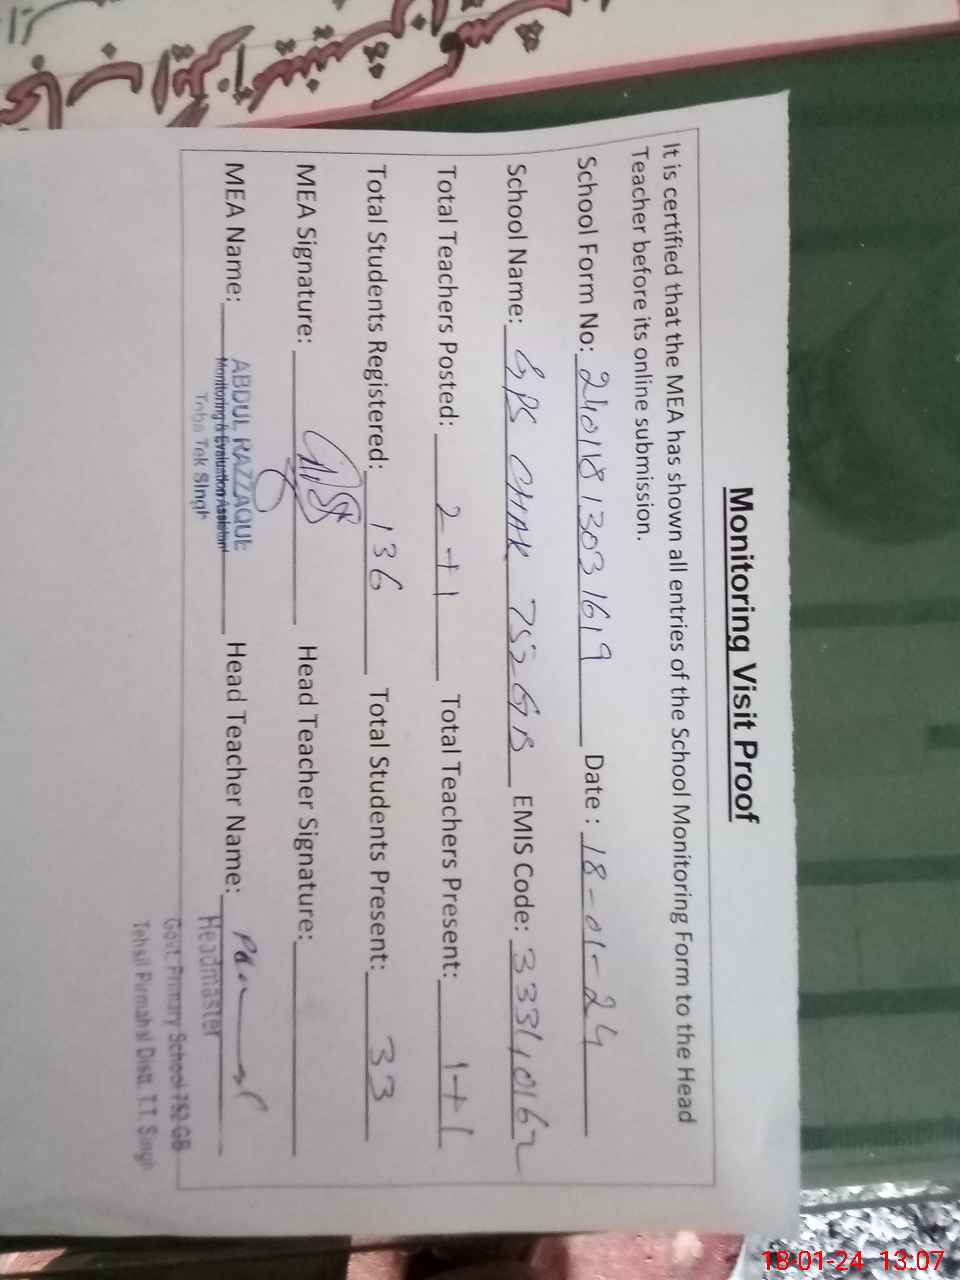 Monitoring Visit Proof
It is certified that the MEA has shown all entries of the School Monitoring Form to the Head
Teacher before its online submission.
School Form No: 2401181303 1619 Date : 18-01-24
School Name: GPS CHAK 752 GB EMIS Code: 33310162
Total Teachers Posted: 2+1 Total Teachers Present: 1+1
Total Students Registered: 136 Total Students Present: 33
MEA Signature: Head Teacher Signature:
MEA Name: ABDUL RAZZAQUE Head Teacher Name:
Monitoring & Evaluation Assistant
Toba Tek Singh
Headmaster
Govt. Primary School 752 GB
Tehsil Pirmahal Distt. T.T. Singh
18-01-24 13:07